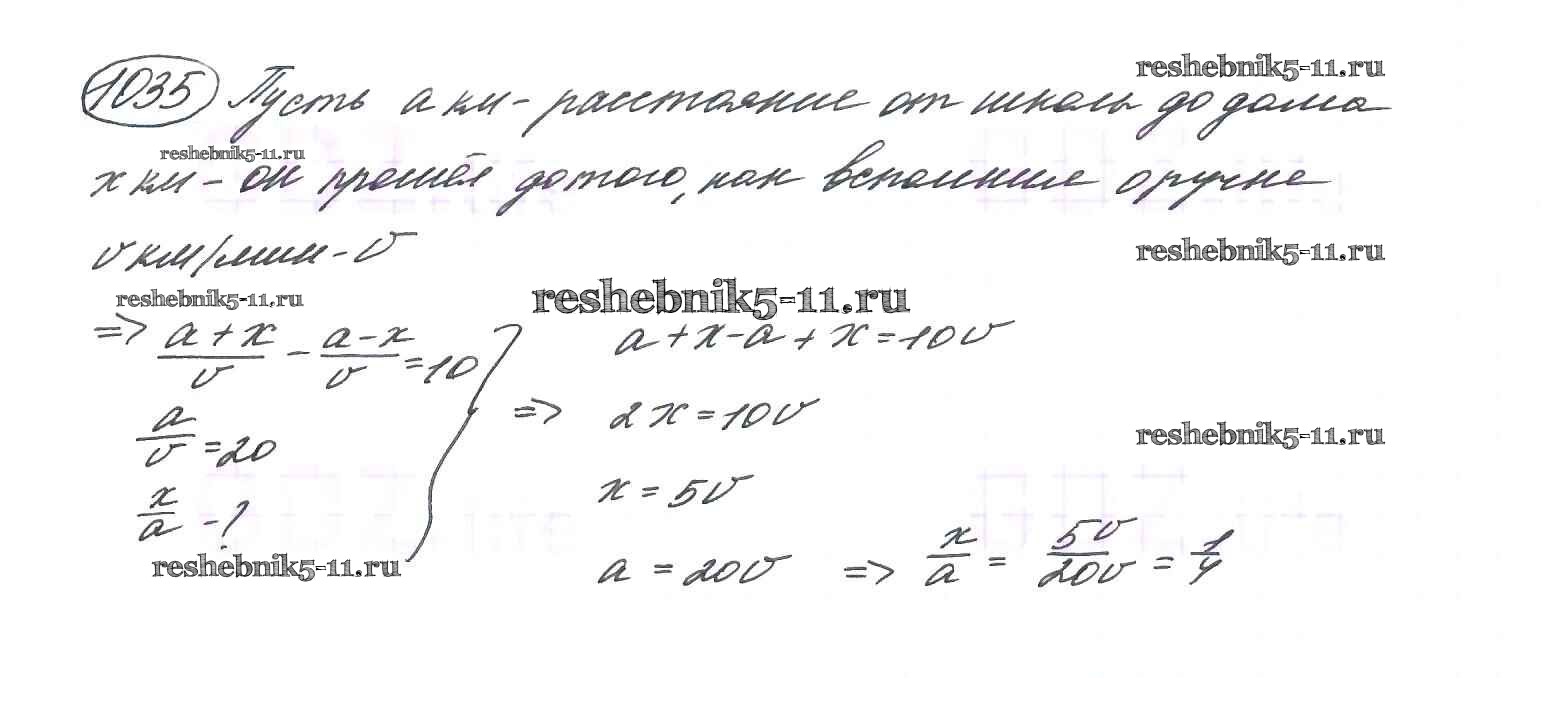 1035 Пусть a км - расстояние от школы до дома
reshebnik5-11.ru
reshebnik5-11.ru
x км - он прошёл до того, как вспомнил о ручке
v км/мин - V
reshebnik5-11.ru
reshebnik5-11.ru
reshebnik5-11.ru
=> (a + x)/v - (a - x)/v = 10
a + x - a + x = 10v
a/v = 20
=> 2x = 10v
reshebnik5-11.ru
x/a - ?
x = 5v
reshebnik5-11.ru
a = 20v => x/a = 5v/20v = 1/4